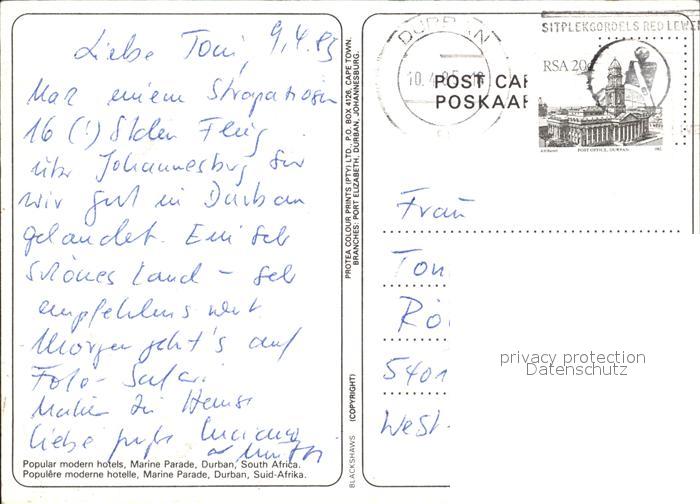 9.4.85
Liebe Toni,
Nach einem Strapaziösen
16 (!) Stden Flug
über Johannesburg sind
wir gut in Durban
gelandet. Ein sehr
schönes Land – sehr
empfehlenswert.
Morgen geht's auf
Foto-Safari.
zu Hause
Liebe
Popular modern hotels, Marine Parade, Durban, South Africa.
Populêre moderne hotelle, Marine Parade, Durban, Suid-Afrika.
BLACKSHAWS (COPYRIGHT)
PROTEA COLOUR PRINTS (PTY) LTD. P.O. BOX 4126, CAPE TOWN.
BRANCHES: PORT ELIZABETH, DURBAN, JOHANNESBURG.
DURBAN
10.4.85
SITPLEKGORDELS RED LEWE
POST CAR
POSKAAR
RSA 20c
POST OFFICE, DURBAN
1982
Frau
Ton
Rö
5401
West
privacy protection
Datenschutz